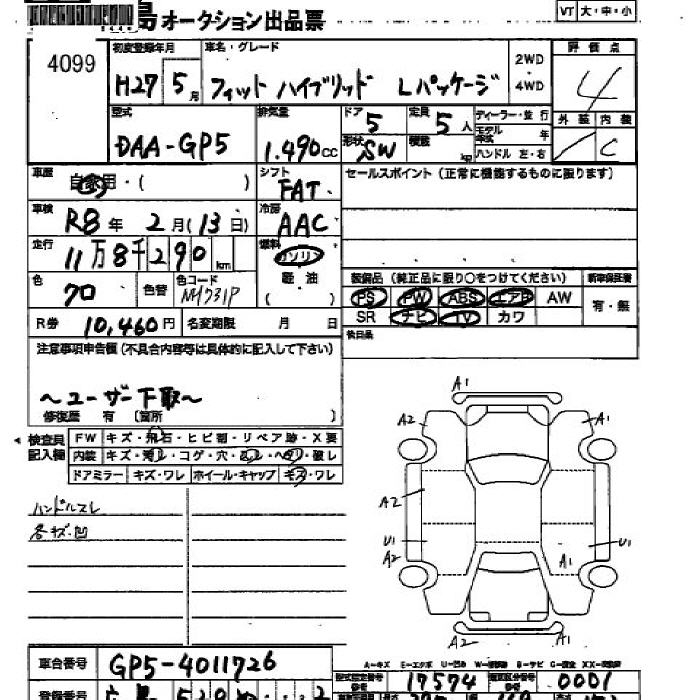 島オークション出品票 VT 大・中・小
4099 初度登録年月 車名・グレード 2WD 評価点
H27 5月 フィット ハイブリッド Lパッケージ ・4WD 4
型式 排気量 ドア 5 定員 5人 ディーラー・並行 外装 内装
DAA-GP5 1.490cc 形状 SW 積載 kg モデル年式 年 C
ハンドル 左・右
車歴 自家用・( ) シフト FAT セールスポイント(正常に機能するものに限ります)
車検 R8年 2月(13日) 冷房 AAC
走行 11万8千290km 燃料 ガソリン
軽油
( )
色 クロ 色替 色コード 装備品(純正品に限り○をつけてください) 新車保証書
PS PW ABS エアB AW 有・無
SR ナビ TV カワ
R券 10,460円 名変期限 月 日 後日品
注意事項申告欄(不具合内容等は具体的に記入して下さい)
~ユーザー下取~
修復歴 有 〔箇所 〕
検査員記入欄 FW キズ・飛石・ヒビ割・リペア跡・X要
内装 キズ・コゲ・穴・破レ
ドアミラー キズ・ワレ ホイール・キャップ キズ・ワレ
ハンドルスレ
各キズ、凹
A1
A2 A1
A2
U1 U1
A2 A1
A2 A1
A-キズ E-エクボ U-凹み
車台番号 GP5-4011726 型式指定番号 17574 類別区分番号 0001
登録番号 広島 520